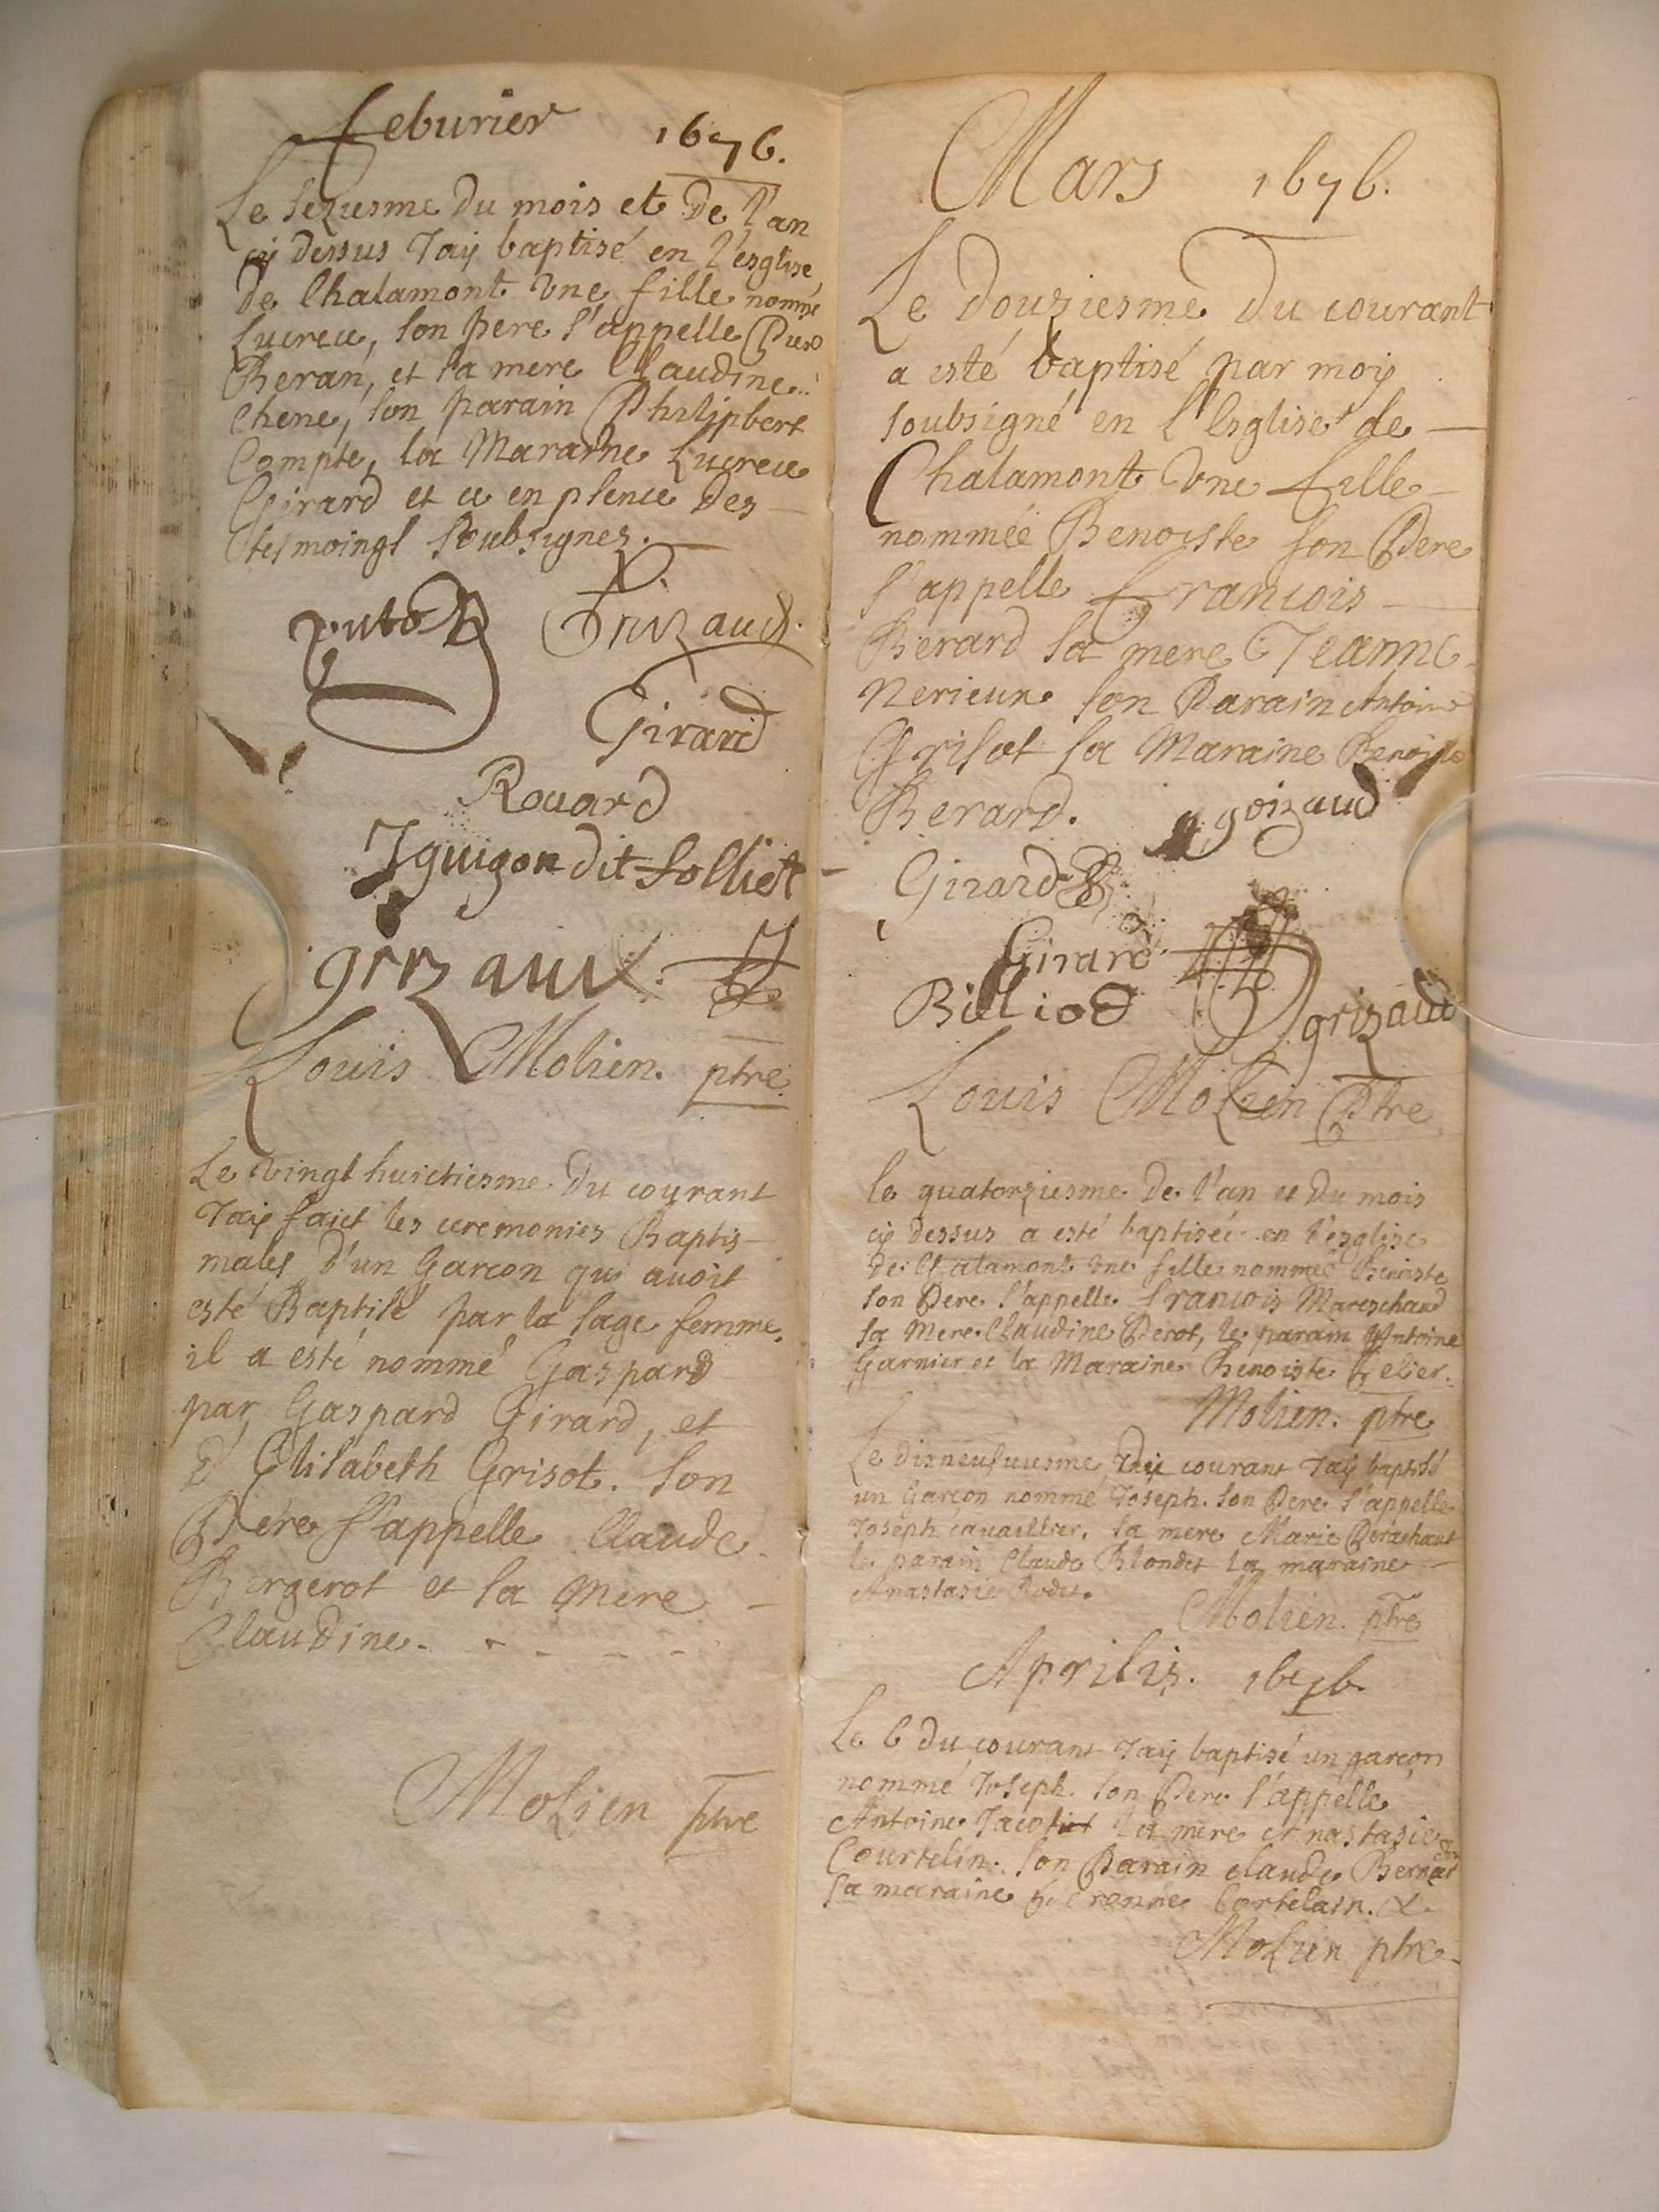 Feburier 1676.
Le seziesme du mois et de l'an
cy dessus J'aÿ baptisé en l'esglise
de Chalamont vne fille nommé
Lucrece, son pere s'appelle
Beran, et sa mere Claudine
Chene, son parain Philipbert
Compte, la Maraine Lucrece
Girard et ce en psence des
tesmoingt soubsignez.
Girard
Rouard
J guigon dit folliet
grizaud
Louis Molien. ptre
Le vingt huictiesme du courant
J'aÿ faict les ceremonies Baptis-
males d'un Garcon qui auoit
esté Baptisé par la sage femme.
il a esté nommé Gaspard
par Gaspard Girard, et
d'Elisabeth Grisot. Son
Pere s'appelle Claude
Bergerot et la Mere
Claudine.
Molien ptre
Mars 1676.
Le douziesme du courant
a esté baptisé par moÿ
soubsigné en l'Esglise de
Chalamont vne fille
nommée Benoiste son Pere
s'appelle Francois
Berard sa mere Jeanne
Nerieux son Parain Antoine
Grisot sa Maraine Benoiste
Berard.
Girard
Girard
Billiod grizaud
Louis Molien Ptre
le quatorziesme de l'an et du mois
cÿ dessus a esté baptiseé en l'esglise
de Chalamont vne fille nommeé Benoiste
son Pere s'appelle Francois Mareschaud
sa Mere Claudine Perot, le parain Antoine
Garnier et la Maraine Benoiste
Molien. ptre
Le dixneufuiesme courant J'aÿ baptisé
un Garcon nommé Joseph. son Pere s'appelle
Joseph cauaillier, sa mere Marie
le parain Claude Blondet la maraine
Anastasie Rodet.
Molien. ptre
Aprilis. 1676.
Le 6 du courant J'aÿ baptisé un garçon
nommé Joseph. son Pere s'appelle
Antoine la mere Anastasie
Courtelin. son Parain claude Bernar
sa maraine Cortelain. &.
Molien ptre